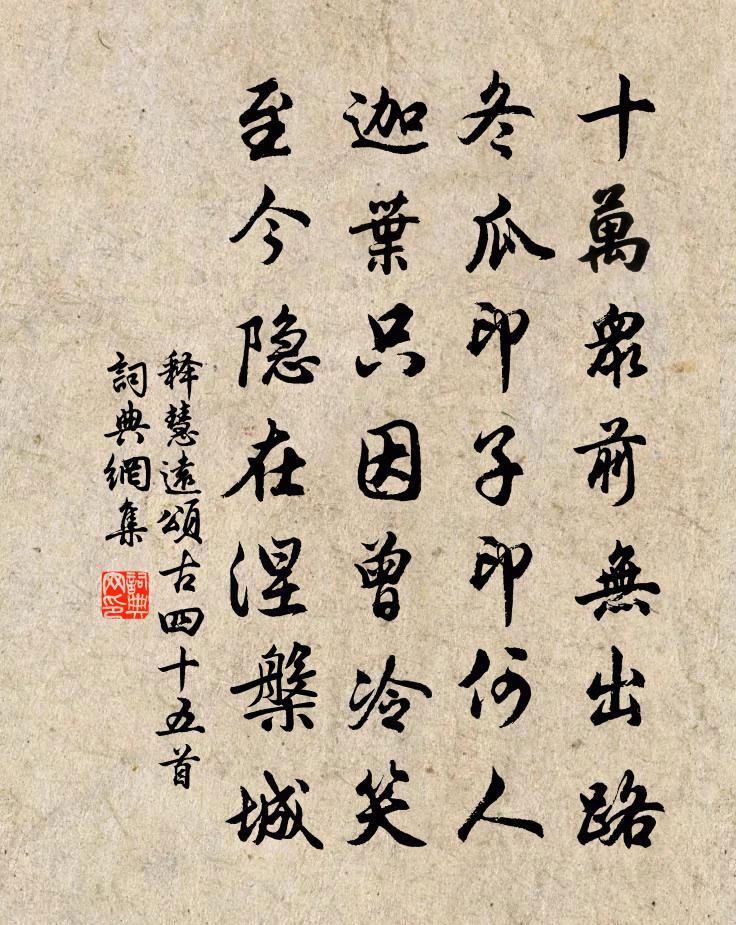 十萬衆前無出路
冬瓜印子印何人
迦葉只因曾冷笑
至今隐在涅槃城
释慧遠頌古四十五首
詞典網集
詞典网印